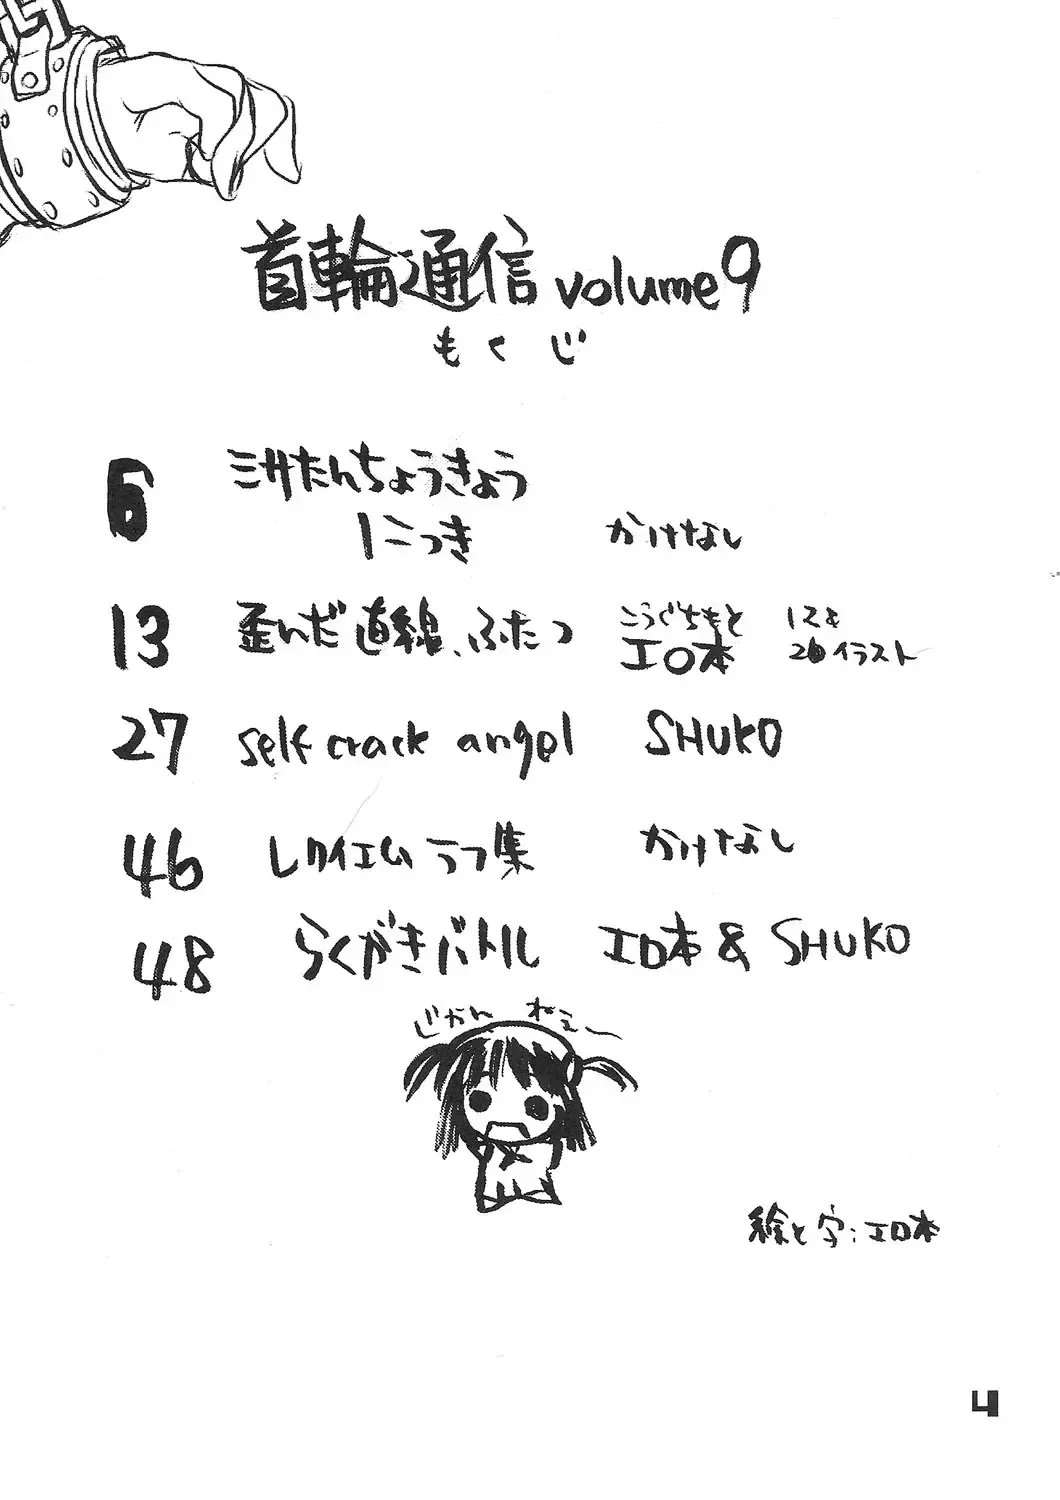 首輪通信 volume9
もくじ
6 三サたんちょうきょう
にっき かけなし
13 歪んだ直線、ふたつ こうぐちもと
エロ本 12と
26イラスト
27 self crack angel SHUKO
46 レクイエムラフ集 かけなし
48 らくがきバトル エロ本 & SHUKO
じかん ねぇー
絵と字:エロ本
4